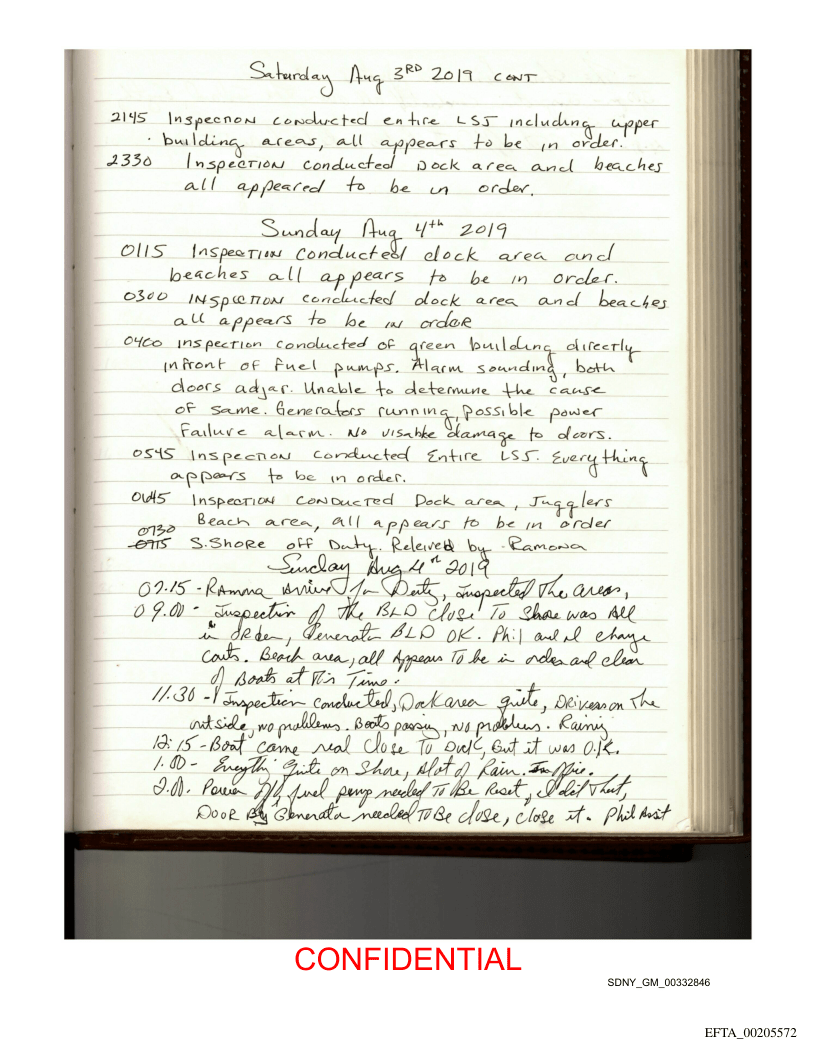 Saturday Aug 3RD 2019 CONT
2145 Inspection conducted entire LSJ including upper
building areas, all appears to be in order.
2330 Inspection conducted Dock area and beaches
all appeared to be in order.
Sunday Aug 4th 2019
0115 Inspection conducted dock area and
beaches all appears to be in order.
0300 inspection conducted dock area and beaches
all appears to be in order
0400 inspection conducted of green building directly
infront of fuel pumps. Alarm sounding, both
doors adjar. Unable to determine the cause
of same. Generators running, possible power
Failure alarm. No visable damage to doors.
0545 Inspection conducted Entire LSJ. Everything
appears to be in order.
0645 Inspection conducted Dock area, Jugglers
Beach area, all appears to be in order
0730
0715 S.Shore off Duty. Releived by Ramona
Sunday Aug 4th 2019
07.15 - Ramona Arrived for Duty, inspected The areas,
09.00 - Inspection of the BLD close To Shore was All
in ORder, Generator BLD OK. Phil and I change
carts. Beach area, all Appears To be in order and clear
of Boats at This Time.
11.30 - Inspection conducted, Dock area quite, Drivers on The
outside, no problems. Boats passing, no problems. Rainig
12:15 - Boat came real Close To Dock, But it was O.K.
1.00 - Everythi quite on Shore, Alot of Rain.
2.00. Power Off fuel pump needed To Be Reset, I did That,
DOOR By Generator needed To Be close, close it. Phil Asst
CONFIDENTIAL
SDNY_GM_00332846
EFTA_00205572